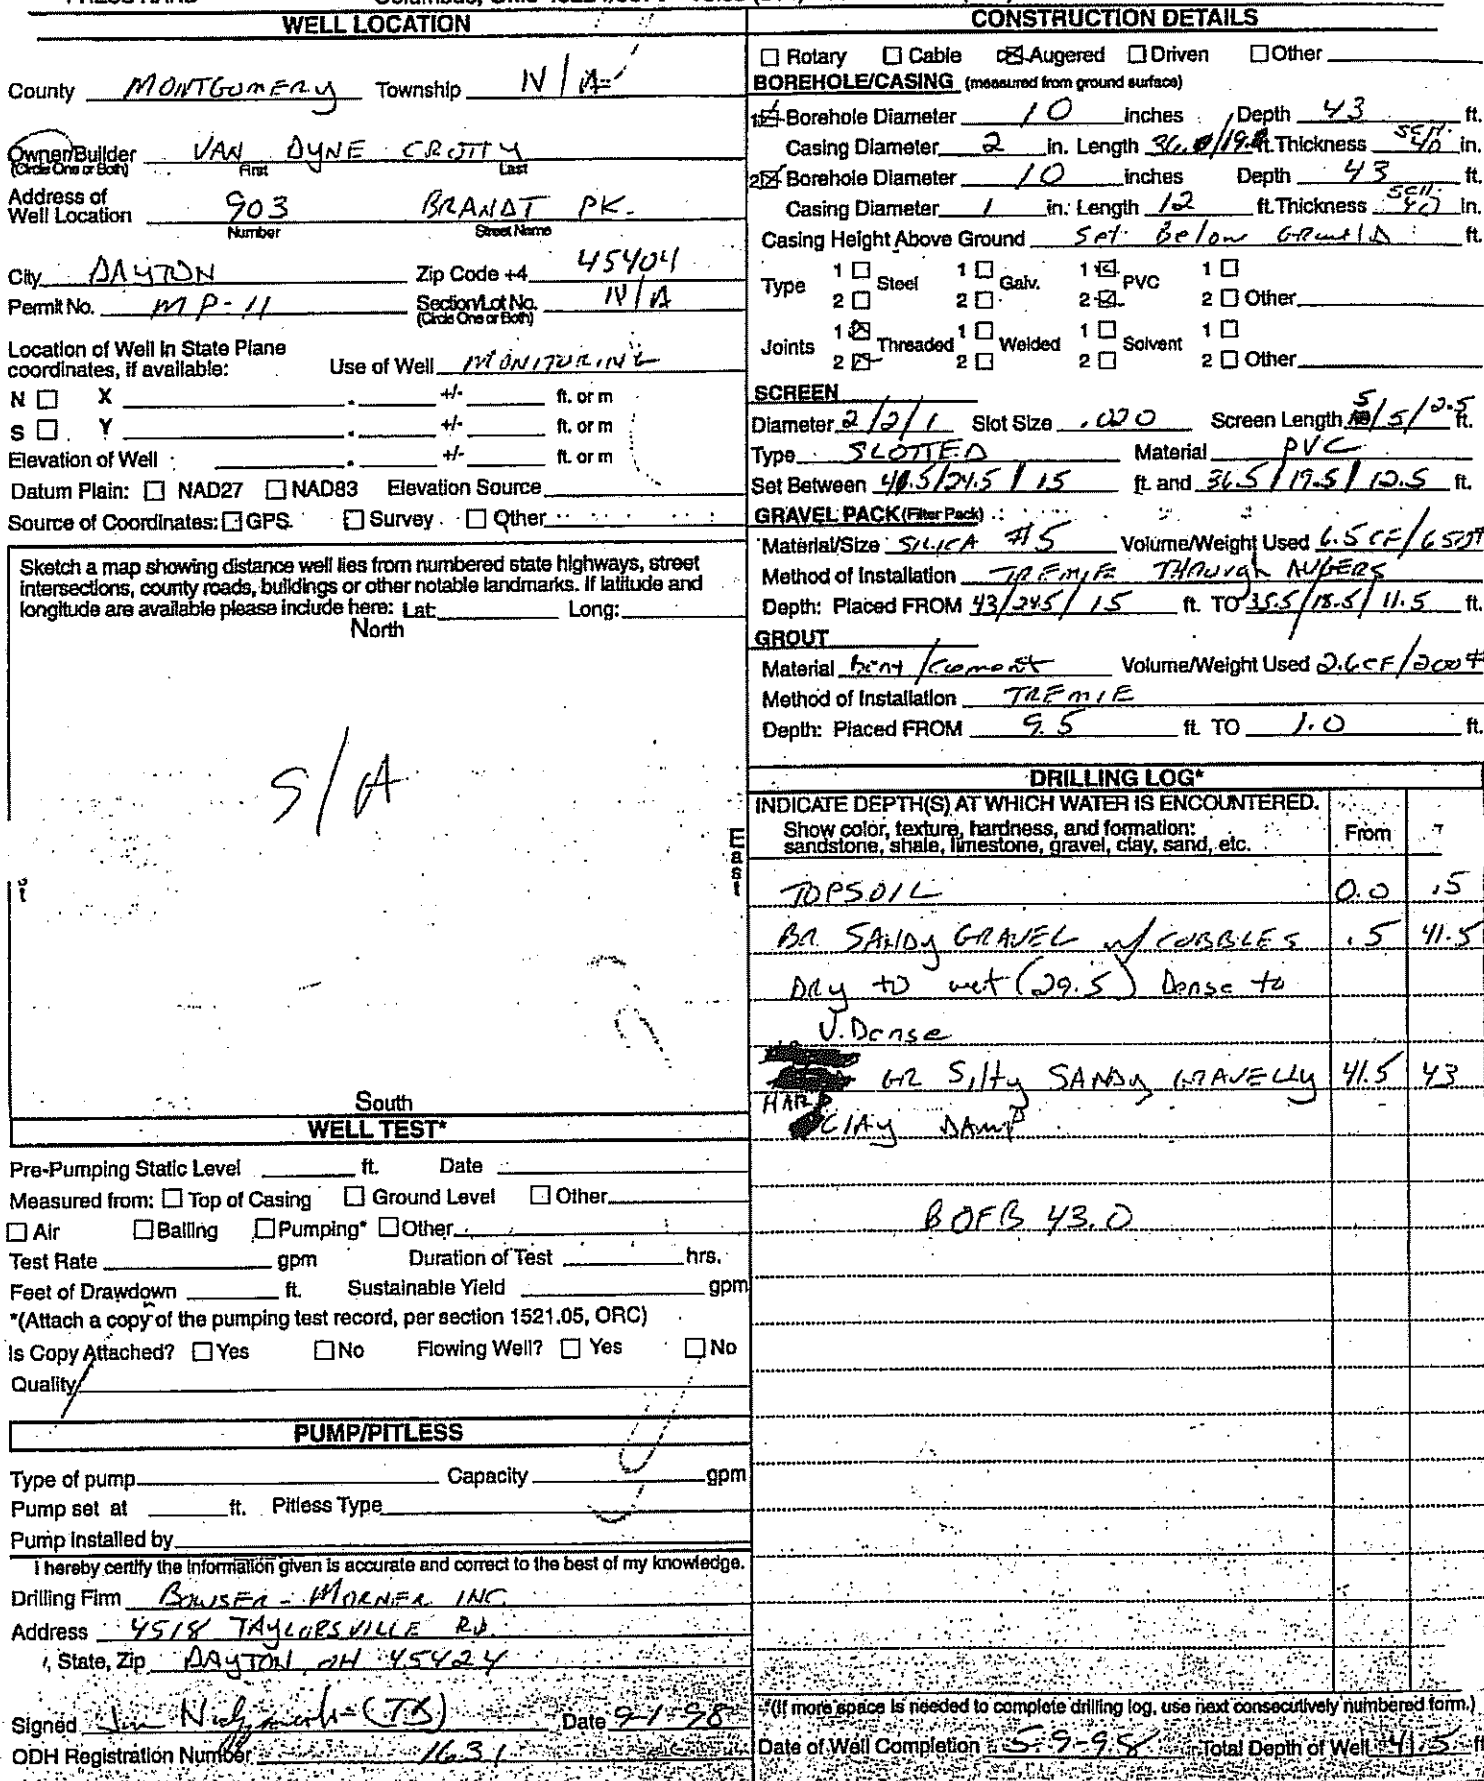 WELL LOCATION
County MONTGOMERY Township N/A
Owner/Builder VAN DYNE CROTTY
(Circle One or Both) First Last
Address of
Well Location 903 BRANDT PK.
Number Street Name
City DAYTON Zip Code +4 45404
Permit No. MP-11 Section/Lot No. N/A
(Circle One or Both)
Location of Well in State Plane
coordinates, if available: Use of Well MONITORING
N X +/- ft. or m
S Y +/- ft. or m
Elevation of Well +/- ft. or m
Datum Plain: NAD27 NAD83 Elevation Source
Source of Coordinates: GPS Survey Other
Sketch a map showing distance well lies from numbered state highways, street
intersections, county roads, buildings or other notable landmarks. If latitude and
longitude are available please include here: Lat: Long:
North
S/A
East
South
WELL TEST*
Pre-Pumping Static Level ft. Date
Measured from: Top of Casing Ground Level Other
Air Bailing Pumping* Other
Test Rate gpm Duration of Test hrs.
Feet of Drawdown ft. Sustainable Yield gpm
*(Attach a copy of the pumping test record, per section 1521.05, ORC)
Is Copy Attached? Yes No Flowing Well? Yes No
Quality
PUMP/PITLESS
Type of pump Capacity gpm
Pump set at ft. Pitless Type
Pump installed by
I hereby certify the information given is accurate and correct to the best of my knowledge.
Drilling Firm BOWSER-MORNER INC.
Address 4518 TAYLORSVILLE RD.
, State, Zip DAYTON, OH 45424
Signed (TB) Date 9-1-98
ODH Registration Number 1631
CONSTRUCTION DETAILS
Rotary Cable Augered Driven Other
BOREHOLE/CASING (measured from ground surface)
1 Borehole Diameter 10 inches Depth 43 ft.
Casing Diameter 2 in. Length ft. Thickness SCH. 40 in.
2 Borehole Diameter 10 inches Depth 43 ft.
Casing Diameter 1 in. Length 12 ft. Thickness SCH. 40 in.
Casing Height Above Ground Set Below Ground ft.
Type 1 Steel 1 Galv. 1 PVC 1
2 2 2 2 Other
Joints 1 Threaded 1 Welded 1 Solvent 1
2 2 2 2 Other
SCREEN
Diameter 2/2/1 Slot Size .020 Screen Length 5/5/2.5 ft.
Type SLOTTED Material PVC
Set Between 41.5/24.5/15 ft. and 36.5/19.5/12.5 ft.
GRAVEL PACK (Filter Pack)
Material/Size SILICA #5 Volume/Weight Used 6.5 CF/650#
Method of Installation TREMIE THROUGH AUGERS
Depth: Placed FROM 43/24.5/15 ft. TO 35.5/18.5/11.5 ft.
GROUT
Material bent/cement Volume/Weight Used 2.6CF/200#
Method of Installation TREMIE
Depth: Placed FROM 9.5 ft. TO 1.0 ft.
DRILLING LOG*
INDICATE DEPTH(S) AT WHICH WATER IS ENCOUNTERED.
Show color, texture, hardness, and formation:
sandstone, shale, limestone, gravel, clay, sand, etc. From
TOPSOIL 0.0 .5
BR. SANDY GRAVEL w/ COBBLES .5 41.5
Dry to wet (29.5) Dense to
V. Dense
GR Silty SANDY GRAVELLY 41.5 43
HARD
CLAY DAMP
BOFB 43.0
*(If more space is needed to complete drilling log, use next consecutively numbered form.)
Date of Well Completion 5-9-98 Total Depth of Well 41.5 ft